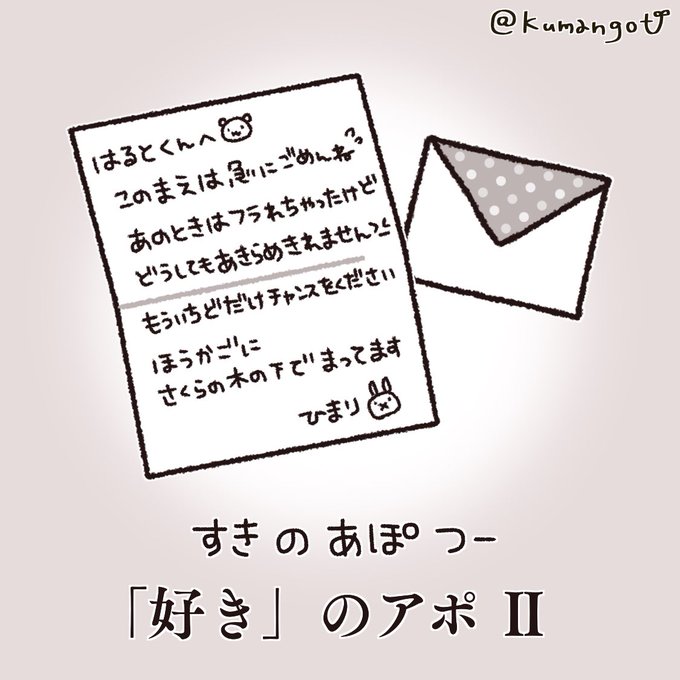 @kumangoty
はるとくんへ
このまえは急にごめんね
あのときはフラれちゃったけど
どうしてもあきらめきれません
もういちどだけチャンスをください
ほうかごに
さくらの木の下でまってます
ひまり
すき の あぽ つー
「好き」のアポ II